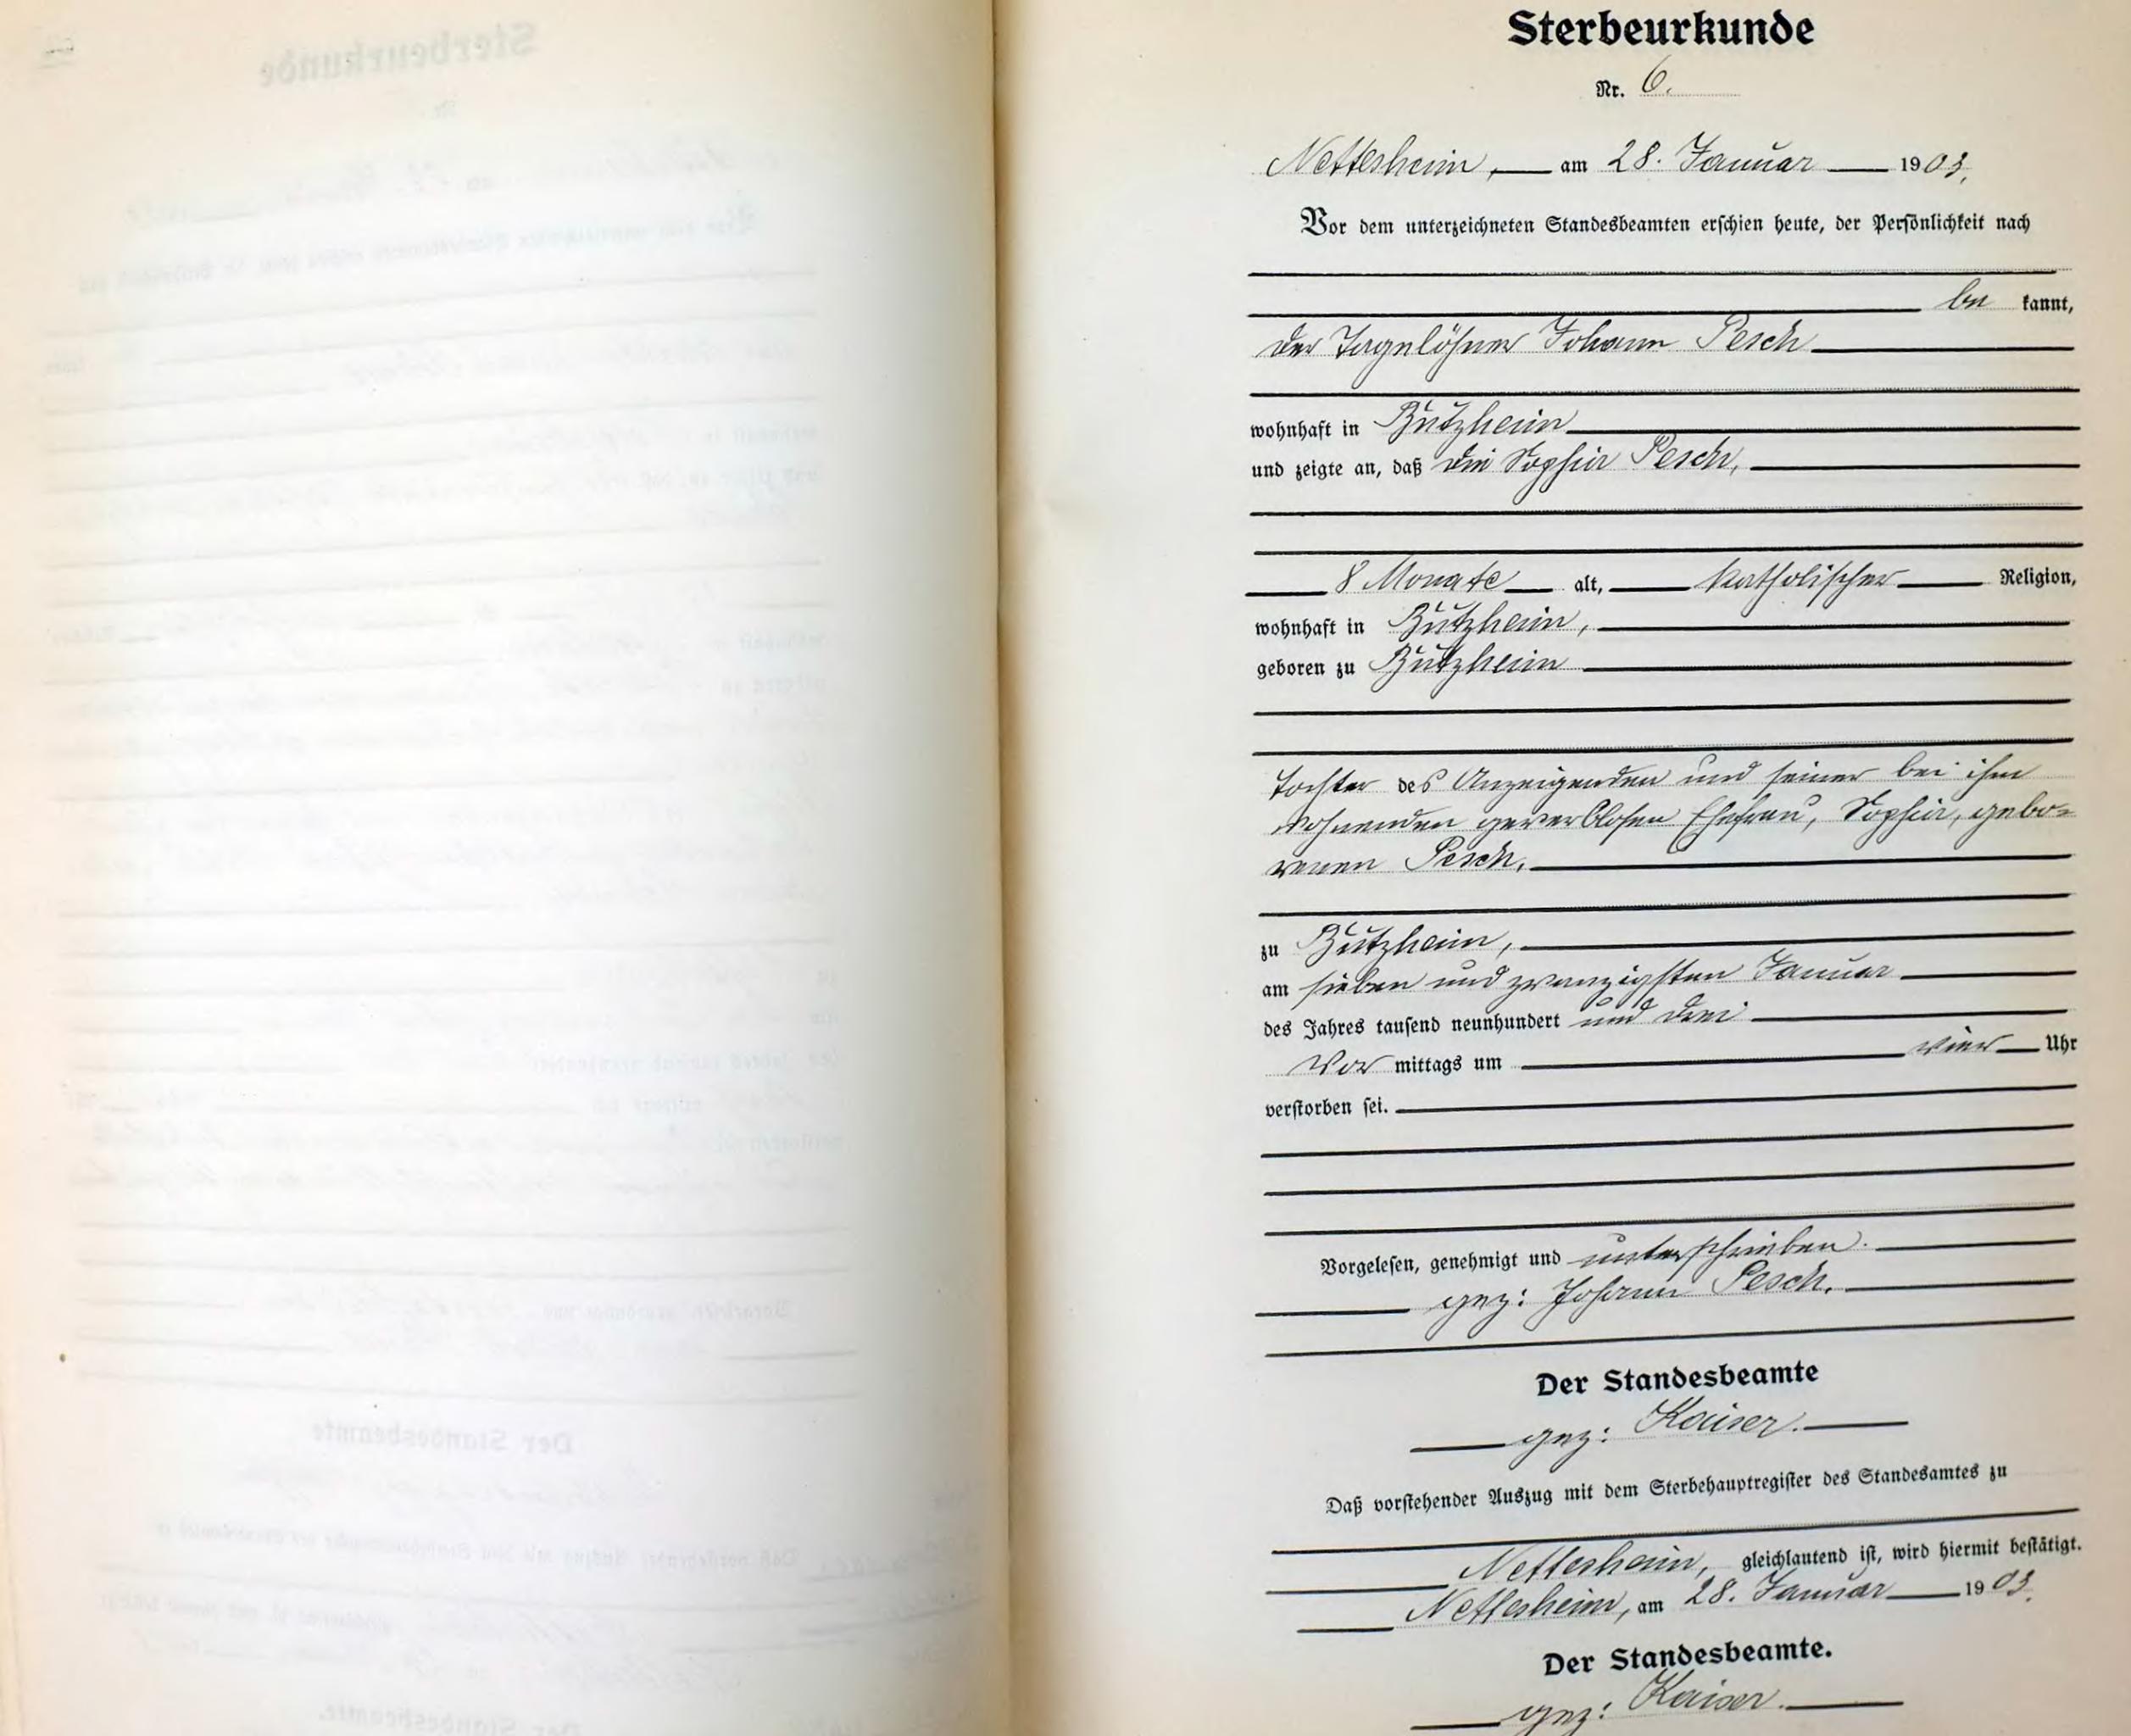 Sterbeurkunde
Nr. 6.
Nettesheim, am 28. Januar 1903.
Vor dem unterzeichneten Standesbeamten erschien heute, der Persönlichkeit nach
be kannt,
der Tagelöhner Johann Pesch
wohnhaft in Butzheim
und zeigte an, daß die Sophia Pesch,
8 Monate alt, katholischer Religion,
wohnhaft in Butzheim,
geboren zu Butzheim
Tochter des Anzeigenden und seiner bei ihm
wohnenden gewerblosen Ehefrau, Sophia, gebo-
renen Pesch,
zu Butzheim,
am sieben und zwanzigsten Januar
des Jahres tausend neunhundert und drei
Vor mittags um vier Uhr
verstorben sei.
Vorgelesen, genehmigt und unterschrieben.
gez: Johann Pesch.
Der Standesbeamte
gez: Kaiser.
Daß vorstehender Auszug mit dem Sterbehauptregister des Standesamtes zu
Nettesheim, gleichlautend ist, wird hiermit bestätigt.
Nettesheim, am 28. Januar 1903.
Der Standesbeamte.
gez: Kaiser.